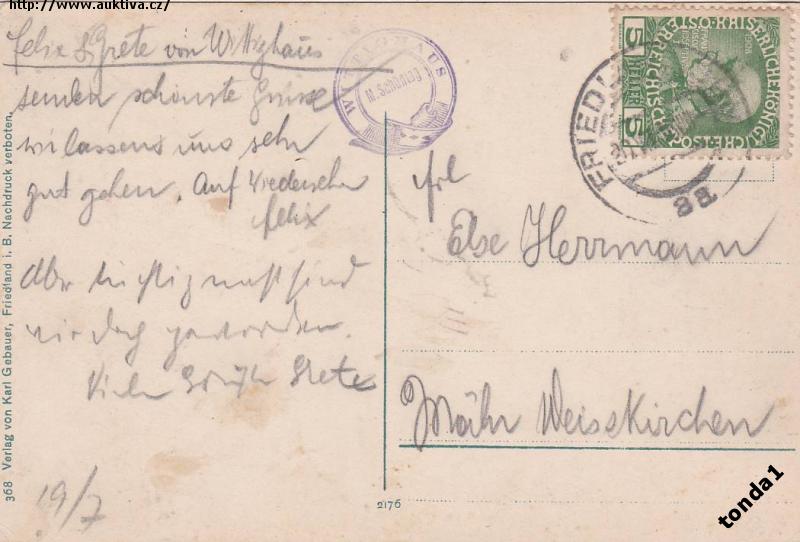 http://www.auktiva.cz/
Felix & Grete von Wittighaus
senden schönste Grüsse
wi lassens uns sehr
gut gehen. Auf Wiedersehn
Felix
Aber tüchtig nass sind
wir doch geworden.
Viele Grüße Grete
19/7
368 Verlag von Karl Gebauer, Friedland i. B. Nachdruck verboten.
2176
WITTIGHAUS
M. Schönlag
KAISERLICHE KÖNIGLICHE ÖSTERREICHISCHE
5 HELLER 5
FRIEDL
8a
Frl
Else Herrmann
Mähr Weisskirchen
tonda1